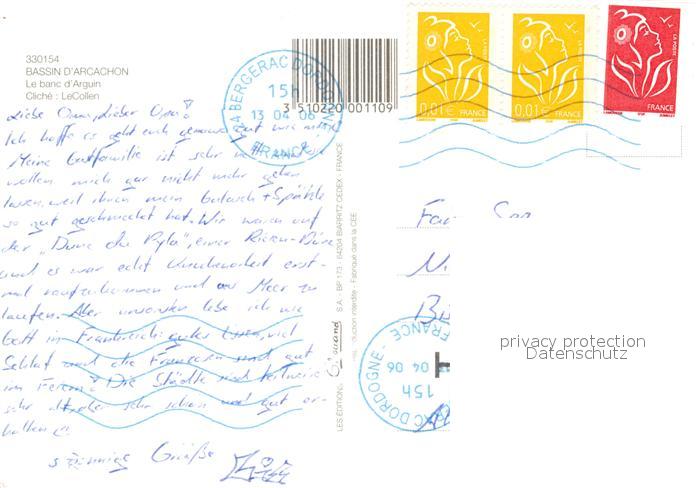 330154
BASSIN D'ARCACHON
Le banc d'Arguin
Cliché : LeCollen
Liebe Oma, lieber Opa!
Ich hoffe es geht euch genauso gut wie mir.
Meine Gastfamilie ist sehr nett
wollen mich gar nicht mehr gehen
lassen, weil ihnen mein Gulasch + Spätzle
so gut geschmeckt hat. Wir waren auf
der „Dune de Pyla", einer Riesen-Düne
und es war echt Knochenarbeit erst-
mal raufzukommen und ans Meer zu
laufen. Aber ansonsten lebe ich wie
Gott in Frankreich: gutes Essen, viel
Schlaf und die Franzosen sind gut
im Feiern! Die Städte sind teilweise
sehr alt, aber sehr schön und gut er-
halten
sonnige Grüße
3 510220 001109
24 BERGERAC DORDOGNE
15h
13 04 06
FRANCE
LES ÉDITIONS
S.A. - BP 173 - 64204 BIARRITZ CEDEX - FRANCE
reproduction interdite - Fabriqué dans la CEE
0,01€ FRANCE
0,01€ FRANCE
LA POSTE
FRANCE
privacy protection
Datenschutz
AC DORDOGNE-
15h
04 06
FRANCE